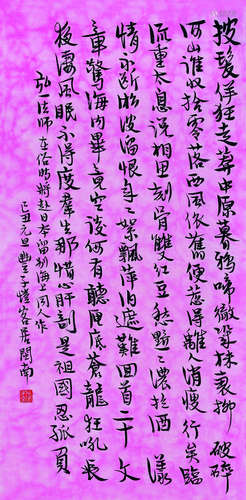 披髮佯狂走莽中原暮鴉啼徹幾株衰柳破碎
河山誰收拾零落西風依舊便惹得離人消瘦行矣臨
流重太息說相思刻骨雙紅豆愁黯黯濃於酒漾
情不斷淞波溜恨年年絮飄萍泊遮難回首二十文
章驚海內畢竟空談何有聽匣底蒼龍狂吼長
夜淒風眠不得度羣生那惜心肝剖是祖國忍孤負
弘一法師在俗時將赴日本留別海上同人作
己丑元旦豐子愷客居閩南